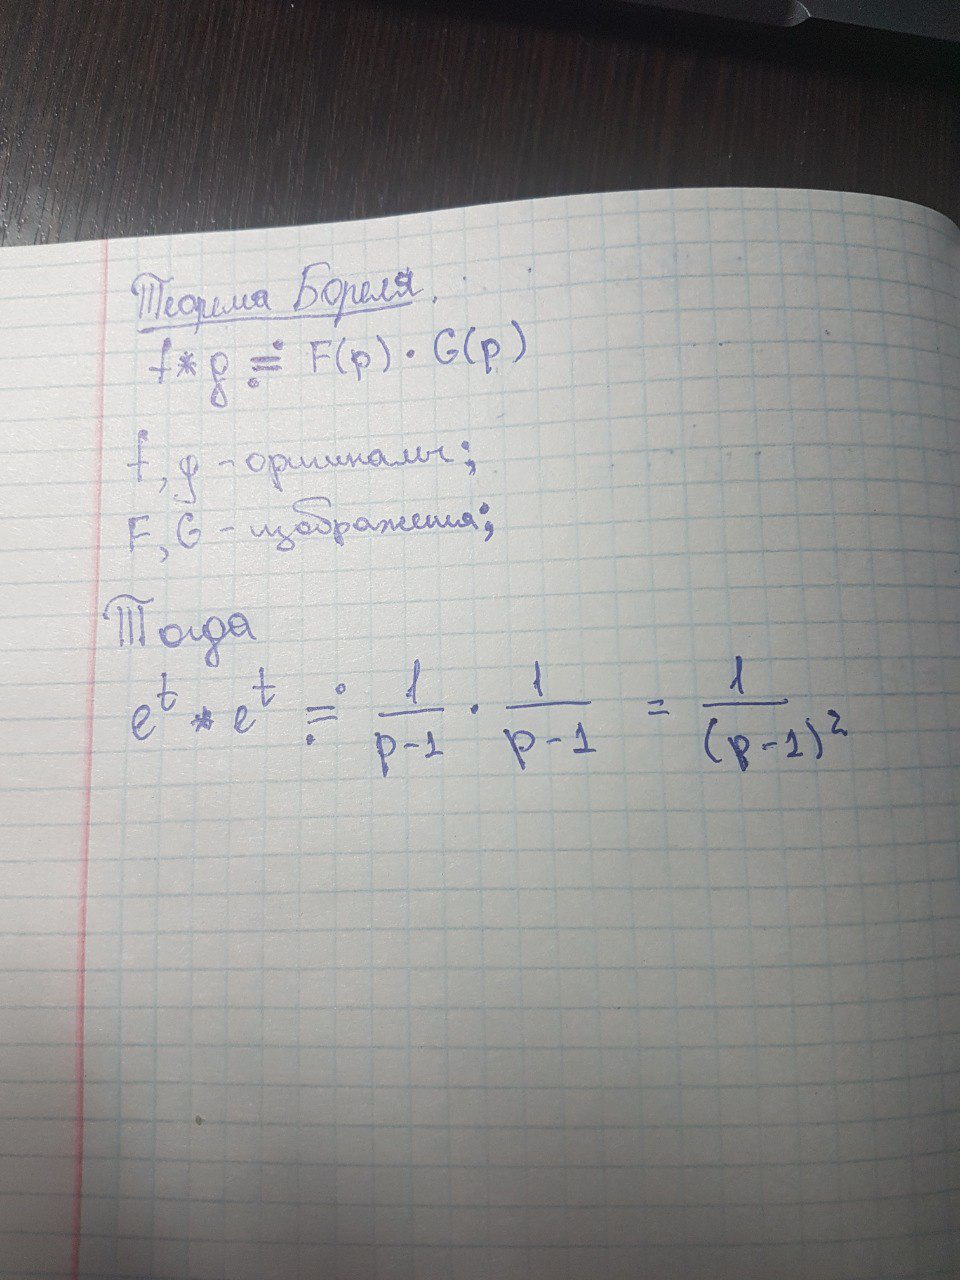 Теорема Бореля.
f*g ≓ F(p)·G(p)
f, g - оригиналы;
F, G - изображения;
Тогда
e^t * e^t ≓ 1/(p-1) · 1/(p-1) = 1/(p-1)^2